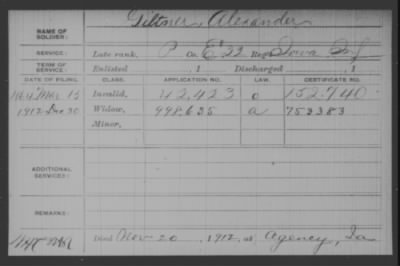 NAME OF SOLDIER: Giltner, Alexander
SERVICE: Late rank, P Co. E 22 Reg't Iowa Inf
TERM OF SERVICE: Enlisted , 1 Discharged , 1
DATE OF FILING. CLASS. APPLICATION NO. LAW. CERTIFICATE NO.
Mar 15 Invalid, 42,423 c 152740
1912 Dec 30 Widow, 998.635 a 753383
Minor,
ADDITIONAL SERVICES:
REMARKS:
Died Nov 20, 1912, at Agency, Ia